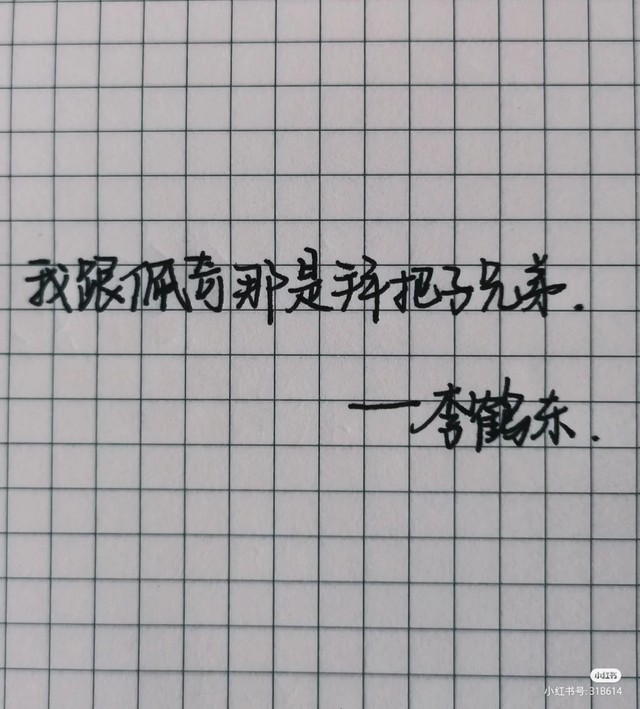 我跟佩奇那是拜把子兄弟.
—李鹤东.
小红书
小红书号:318614